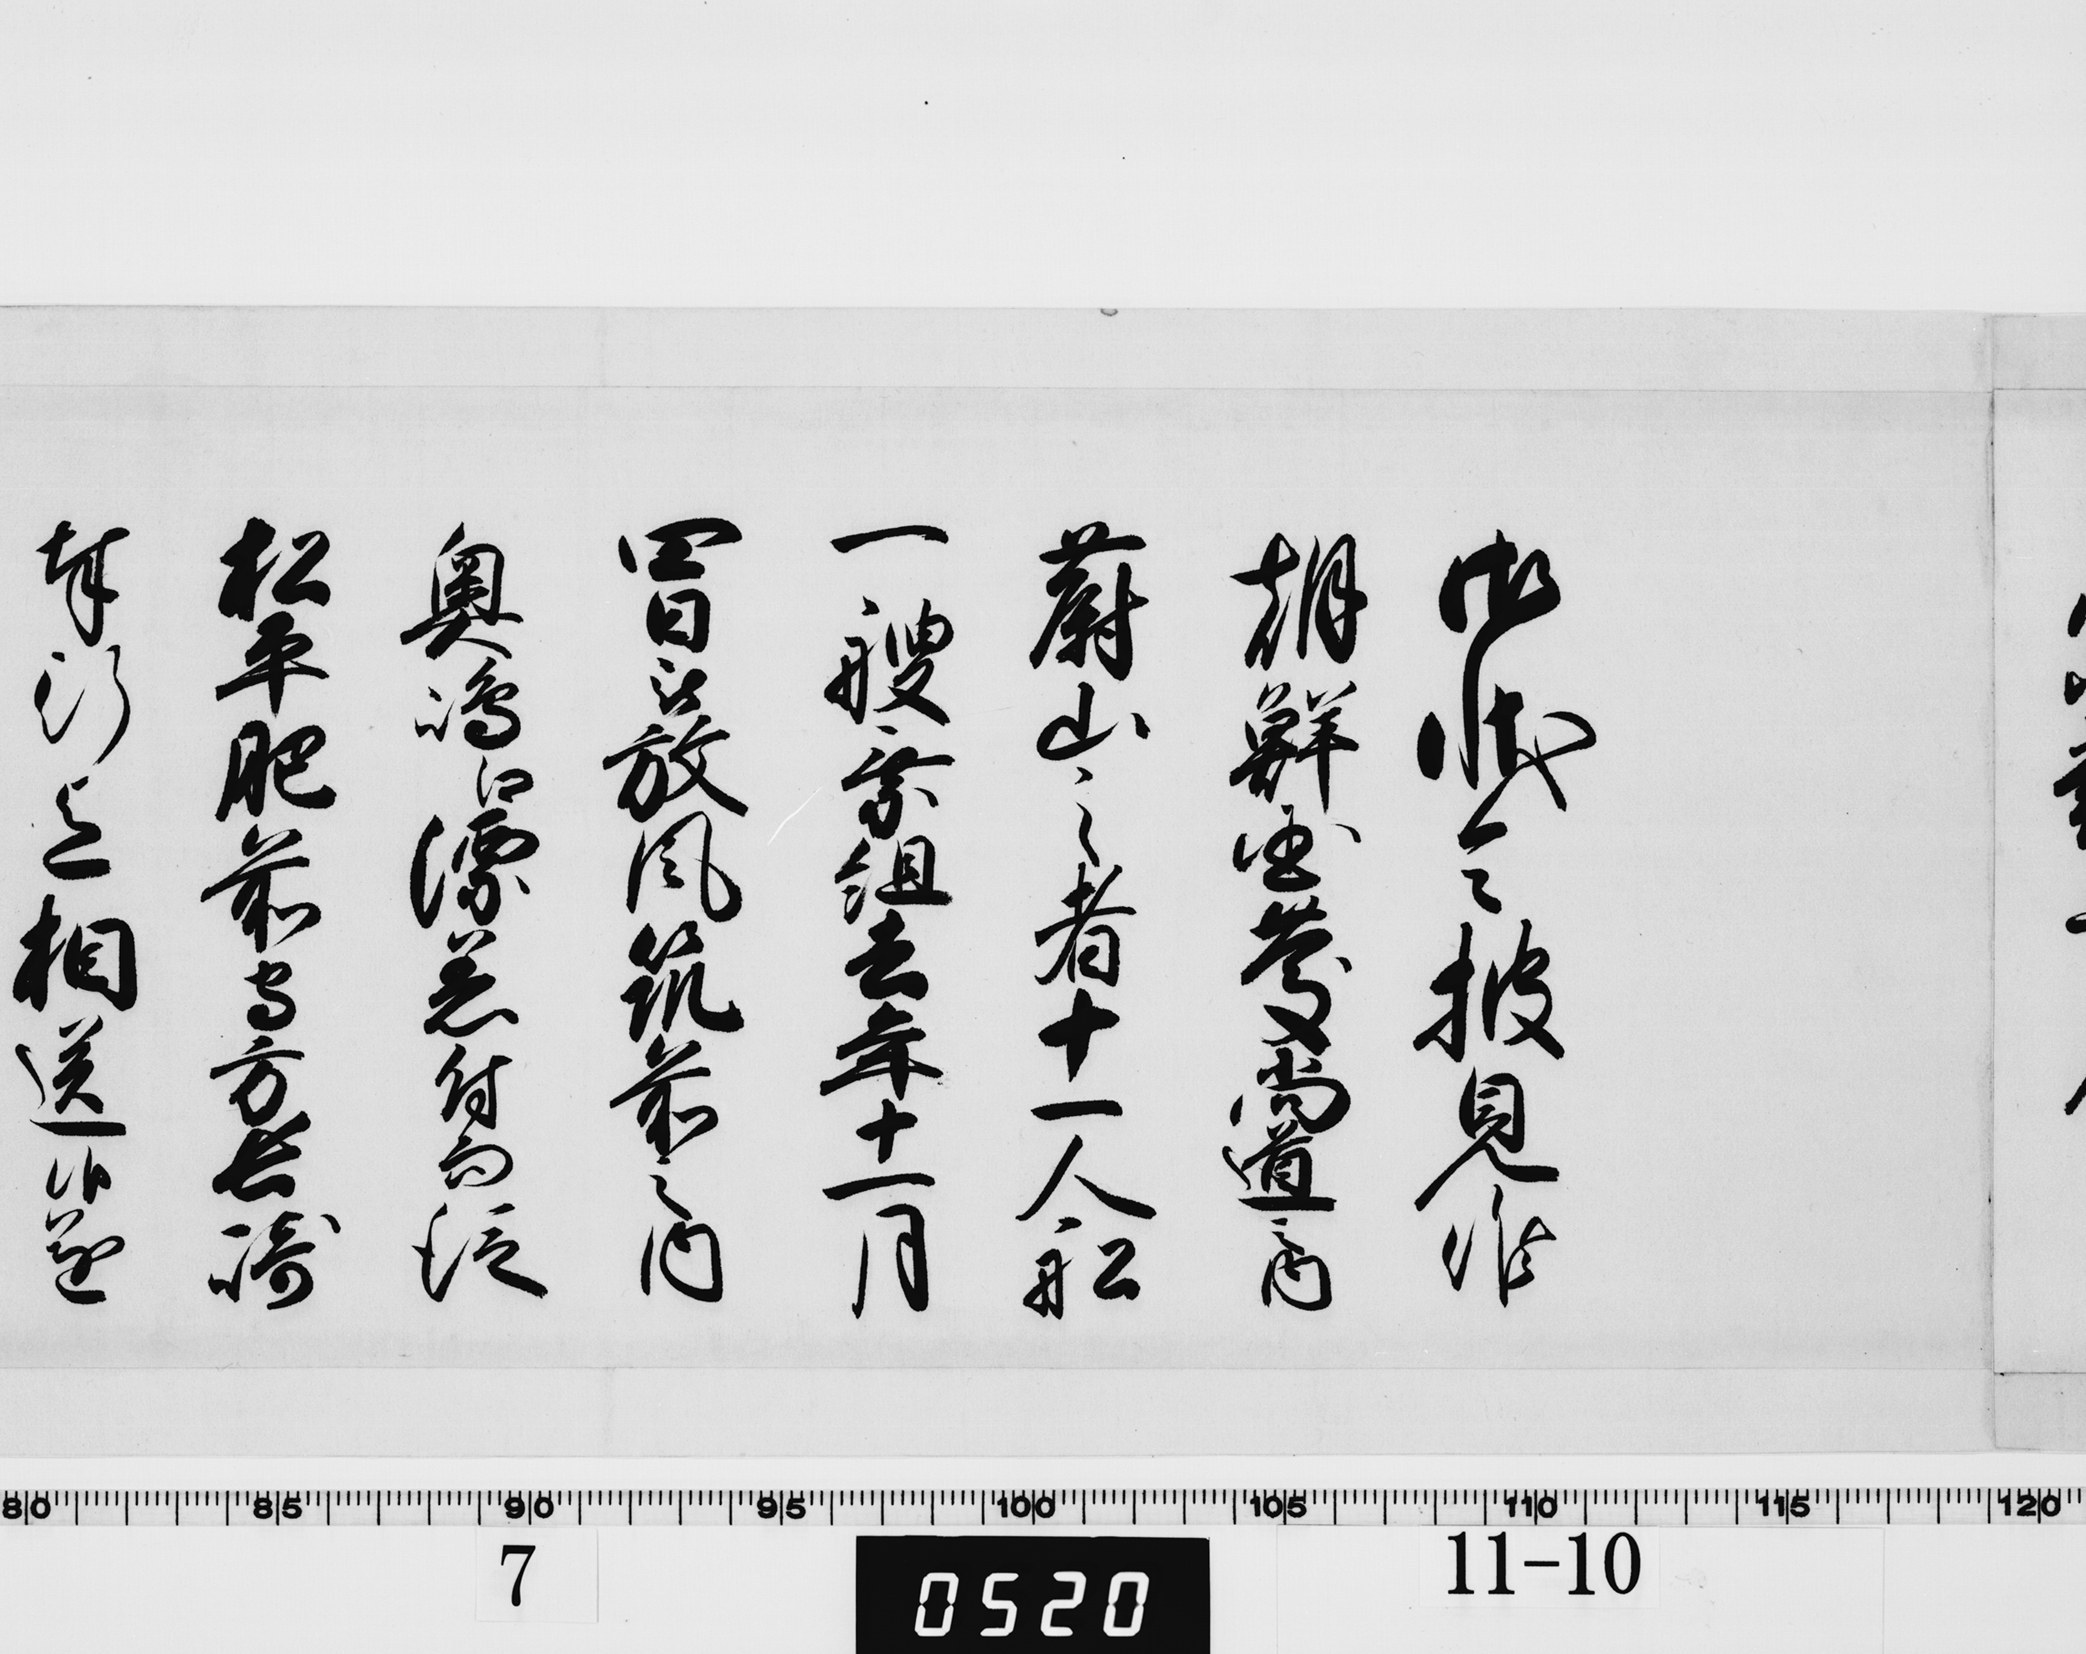 御状令披見候
朝鮮国慶尚道之内
蔚山之者十一人船
一艘ニ乗組去年十一月
四日被放風筑前之内
奥嶋江漂着付而従
松平肥前守方長崎
奉行迄相送候
80 85 90 95 100 105 110 115 120
7 0520 11-10